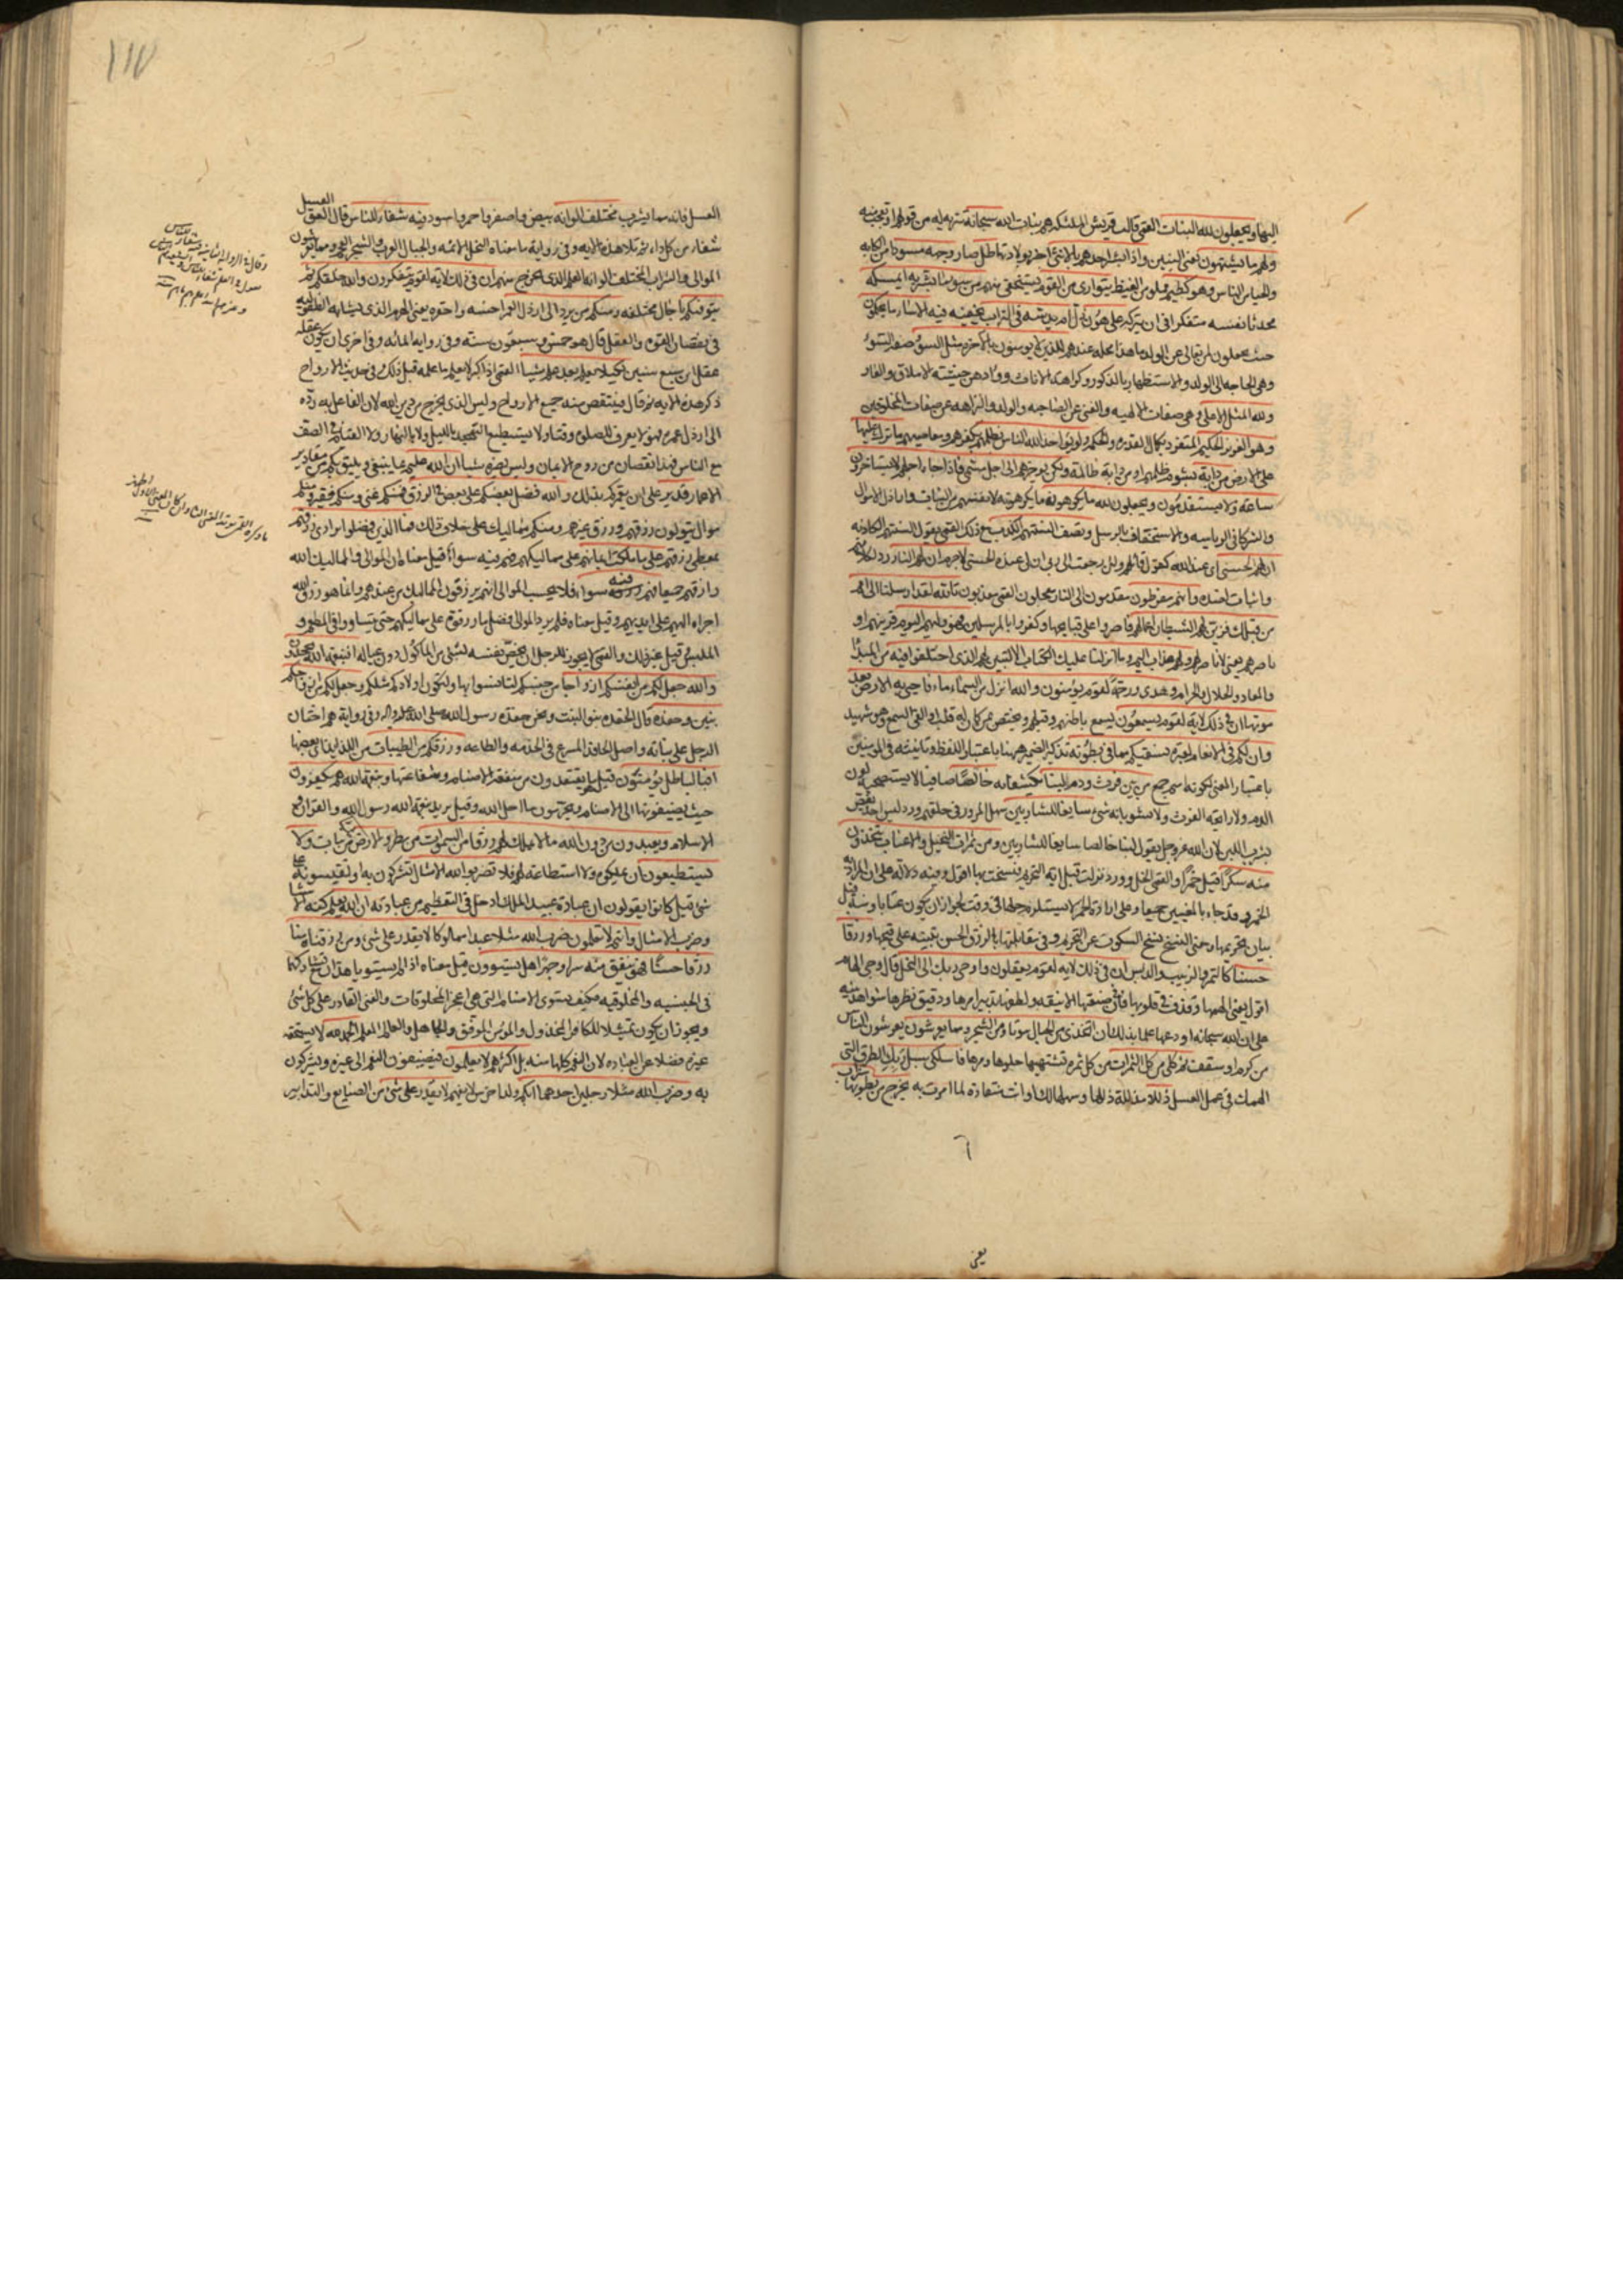 اليها ويجعلون لله البنات القمي قالت قريش الملئكة هم بنات الله سبحانه تنزيه له من قولهم او تعجب منه
ولهم ما يشتهون يعني البنين واذا بشر احدهم بالانثى اخبر بولادتها ظل صار وجهه مسودا من الكابه
والحياء من الناس وهو كظيم مملو من الغيظ يتوارى من القوم يستخفي منهم من سوء ما بشر به ايمسكه
محدثا نفسه متفكرا في ان يتركه على هون ذل ام يدسه في التراب يخفيه فيه الا ساء ما يحكمون
حيث يجعلون لمن تعالى عن الولد ما هذا محله عندهم للذين لا يؤمنون بالاخرة مثل السوء صفة السوء
وهي الحاجه الى الولد والاستظهار بالذكور وكراهة الاناث ووأدهن خشية الاملاق والعار
ولله المثل الاعلى وهي صفات الالهيه والغنى عن الصاحبه والولد والنزاهه عن صفات المخلوقين
وهو العزيز الحكيم المتفرد بكمال القدره والحكمه ولو يؤاخذ الله الناس بظلمهم بكفرهم ومعاصيهم ما ترك عليها
على الارض من دابة بشوم ظلمهم او من دابة ظالمة ولكن يؤخرهم الى اجل مسمى فاذا جاء اجلهم لا يستاخرون
ساعة ولا يستقدمون ويجعلون لله ما يكرهون ما يكرهونه لانفسهم من البنات واراذل الاموال
والشركا في الرياسه والاستخفاف بالرسل وتصف السنتهم الكذب مع ذلك القمي يقول السنتهم الكاذبه
ان لهم الحسنى اي عند الله كقول قائلهم ولئن رجعت الى ربي ان لي عنده للحسنى لا جرم ان لهم النار رد لكلامهم
واثبات لضده وانهم مفرطون مقدمون الى النار معجلون القمي معذبون تالله لقد ارسلنا الى امم
من قبلك فزين لهم الشيطان اعمالهم فاصروا على قبايحها وكفروا بالمرسلين فهو وليهم اليوم قرينهم او
ناصرهم يعني لا ناصر لهم ولهم عذاب اليم وما انزلنا عليك الكتاب الا لتبين لهم الذي اختلفوا فيه من المبدا
والمعاد والحلال والحرام وهدى ورحمة لقوم يؤمنون والله انزل من السماء ماء فاحيى به الارض بعد
موتها ان في ذلك لاية لقوم يسمعون
وان لكم في الانعام لعبرة نسقيكم مما في بطونه تذكير الضمير ههنا باعتبار اللفظ وتانيثه في المومنين
باعتبار المعنى لكونه اسم جمع من بين فرث ودم لبنا يكتنفانه خالصا صافيا لا يستصحبه لون
الدم ولا رايحه الفرث ولا يشوبانه شي سايغا للشاربين سهل المرور في حلقهم ورد ليس احد يغص
بشرب اللبن لان الله عز وجل يقول لبنا خالصا سايغا للشاربين ومن ثمرات النخيل والاعناب تتخذون
منه سكرا قيل خمرا والقمي الخل وورد نزلت قبل اية التحريم فنسخت بها اقول وفيه دلالة على ان المراد به
الخمر وقد جاء بالمعنيين جميعا وعلى ارادة الخمر لا يستلزم حلها في وقت لجواز ان يكون عتابا ومنة قبل
بيان تحريمها ومعنى النسخ نسخ السكوت عن التحريم وفي مقابلتها بالرزق الحسن تنبيه على قبحها ورزقا
حسنا كالتمر والزبيب والدبس ان في ذلك لاية لقوم يعقلون واوحى ربك الى النحل قال وحى الهام
اقول يعني الهمها وقذف في قلوبها فان صنعتها الانيقه ولطفها في تدبير امرها ودقيق نظرها شواهد بينه
على ان الله سبحانه اودعها علما بذلك ان اتخذي من الجبال بيوتا ومن الشجر ومما يعرشون يعرشون الناس
من كرم او سقف ثم كلي من كل الثمرات من كل ثمره تشتهيها حلوها ومرها فاسلكي سبل ربك الطرق التي
الهمك في عمل العسل ذللا مذللة ذللها وسهلها لك او انت منقادة لما امرت به يخرج من بطونها شراب
يعني
١١٧
العسل فانه مما يشرب مختلف الوانه ابيض واصفر واحمر واسود فيه شفاء للناس قال لعق العسل
شفاء من كل داء ثم تلا هذه الايه وفي رواية ما معناه النحل الائمه والجبال العرب والشجر العجم ومما يعرشون
الموالى والشراب المختلف الوانه العلم الذي يخرج منهم ان في ذلك لاية لقوم يتفكرون والله خلقكم ثم
يتوفيكم باجال مختلفه ومنكم من يرد الى ارذل العمر اخسه واحقره يعني الهرم الذي يشابه الطفوليه
في نقصان القوه والعقل قال هو خمس وسبعون سنه وفي روايه المائه وفي اخرى ان يكون عقله
عقل ابن سبع سنين لكيلا يعلم بعد علم شيئا القمي اذا كبر لا يعلم ما علمه قبل ذلك وفي حديث الارواح
ذكر هذه الايه ثم قال فينتقص منه جميع الارواح وليس الذي يخرج من دين الله لان الفاعل به رده
الى ارذل عمره فهو لا يعرف للصلوة وقتا ولا يستطيع التهجد بالليل ولا بالنهار ولا القيام في الصف
مع الناس فهذا نقصان من روح الايمان وليس يضره شيئا ان الله عليم بما ينبغي ويليق بكم من مقادير
الاعمار قدير على ان يعمركم بذلك والله فضل بعضكم على بعض في الرزق فمنكم غني ومنكم فقير ومنكم
موال يتولون رزقهم ورزق غيرهم ومنكم مماليك على خلاف ذلك فما الذين فضلوا برادي رزقهم
بمعطي رزقهم على ما ملكت ايمانهم على مماليكهم فهم فيه سواء قيل معناه ان الموالى والمماليك الله
رازقهم جميعا فهم فيه سواء فلا يحسب الموالى انهم يرزقون المماليك من عندهم وانما هو رزق الله
اجراه اليهم على ايديهم وقيل معناه فلم يرد الموالى فضل ما رزقوه على مماليكهم حتى يتساووا في المطعم و
الملبس قيل غير ذلك والقمي لا يجوز للرجل ان يخص نفسه بشئ من الماكول دون عياله افبنعمة الله يجحدون
والله جعل لكم من انفسكم ازواجا من جنسكم لتانسوا بها ولتكون اولادكم مثلكم وجعل لكم من ازواجكم
بنين وحفدة قال الحفده بنو البنت ونحن حفدة رسول الله صلى الله عليه واله وفي رواية هم اختان
الرجل على بناته واصل الحافد المسرع في الخدمه والطاعه ورزقكم من الطيبات من اللذايذ اي بعضها
افبالباطل يؤمنون قيل هو ما يعتقدون من منفعة الاصنام وشفاعتها وبنعمة الله هم يكفرون
حيث يضيفونها الى الاصنام ويحرمون ما احل الله وقيل يريد بنعمة الله رسول الله والقران و
الاسلام ويعبدون من دون الله ما لا يملك لهم رزقا من السموات من مطر والارض من نبات ولا
يستطيعون ان يملكوه ولا استطاعة لهم فلا تضربوا لله الامثال تشركون به او تقيسونه على
شئ قيل كانوا يقولون ان عبادة عبيد الملك ادخل في التعظيم من عبادته ان الله يعلم كنه الاشيا
وضرب الامثال وانتم لا تعلمون ضرب الله مثلا عبدا مملوكا لا يقدر على شئ ومن رزقناه منا
رزقا حسنا فهو ينفق منه سرا وجهرا هل يستوون قيل معناه اذا لم يستويا هذان مع تشاركهما
في الجنسيه والمخلوقيه فكيف يستوي الاصنام التي هي اعجز المخلوقات والغني القادر على كل شئ
ويجوز ان يكون تمثيلا للكافر المخذول والمؤمن الموفق والجاهل والعالم المعلم الحمد لله لا يستحقه
غيره فضلا عن العباده لان النعم كلها منه بل اكثرهم لا يعلمون فيضيفون النعم الى غيره ويشركون
به وضرب الله مثلا رجلين احدهما ابكم ولد اخرس لا يفهم لا يقدر على شئ من الصنايع والتدابير